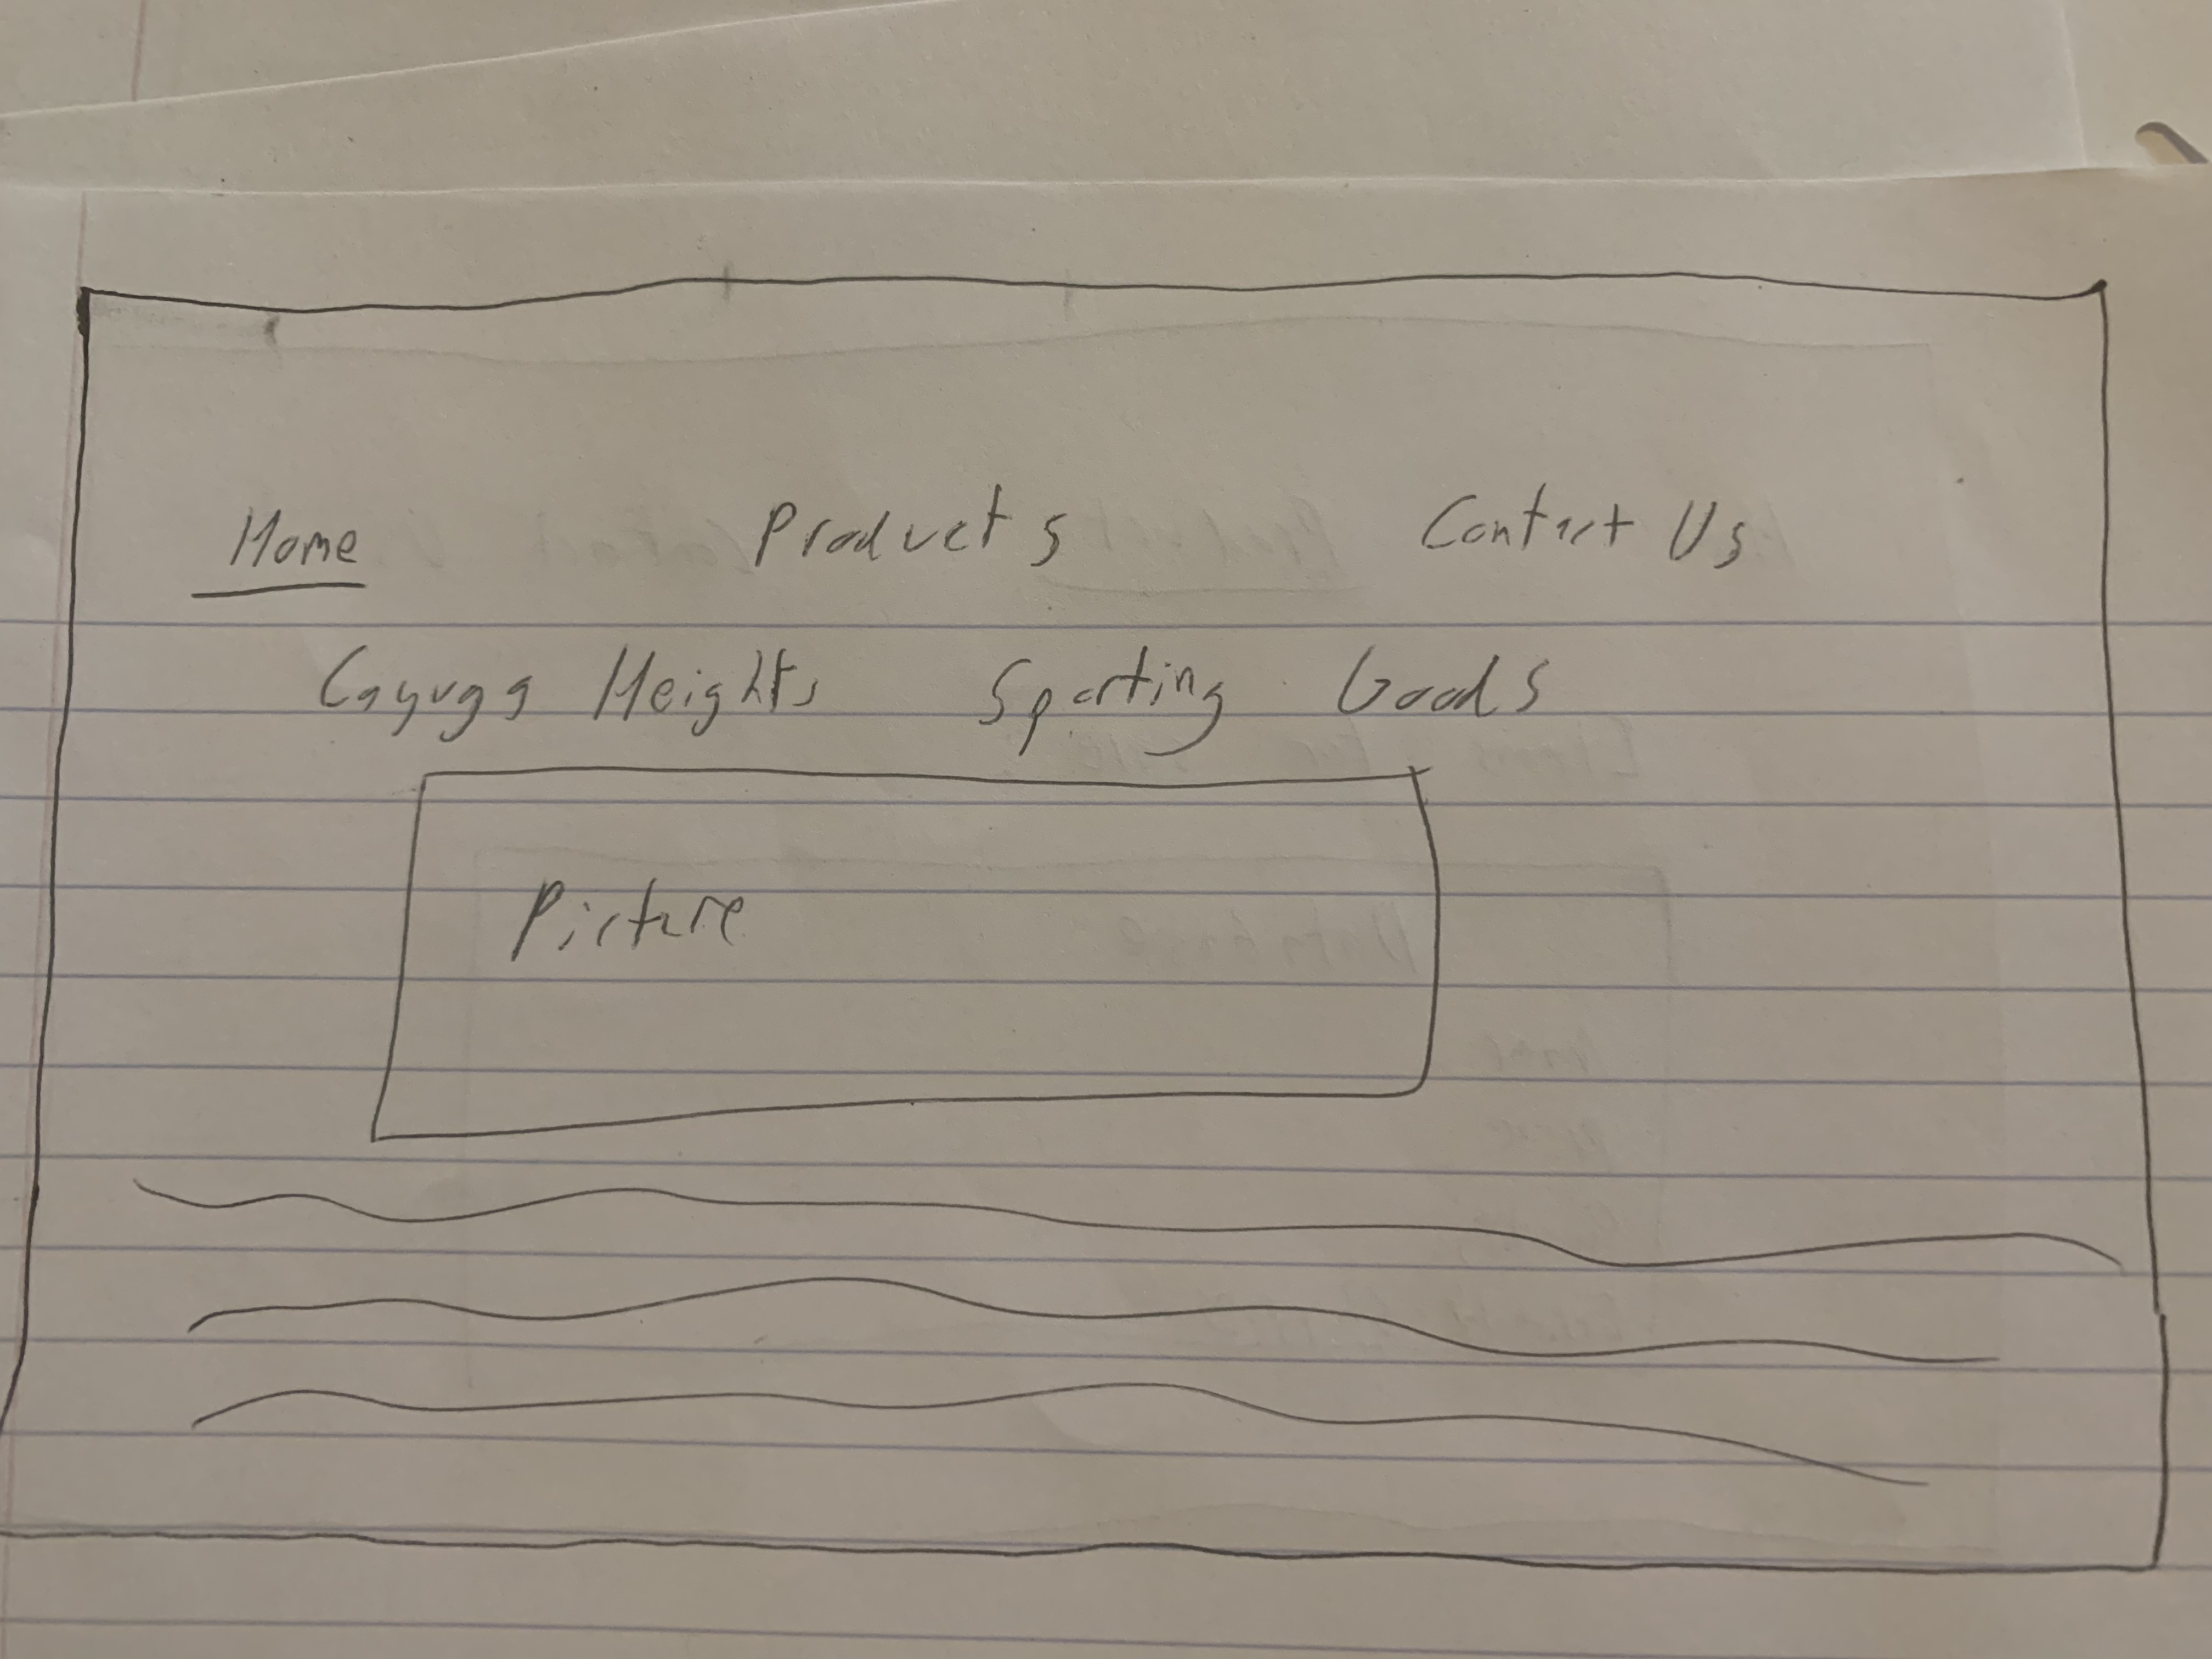 Home Products Contact Us
Cayuga Heights Sporting Goods
Picture